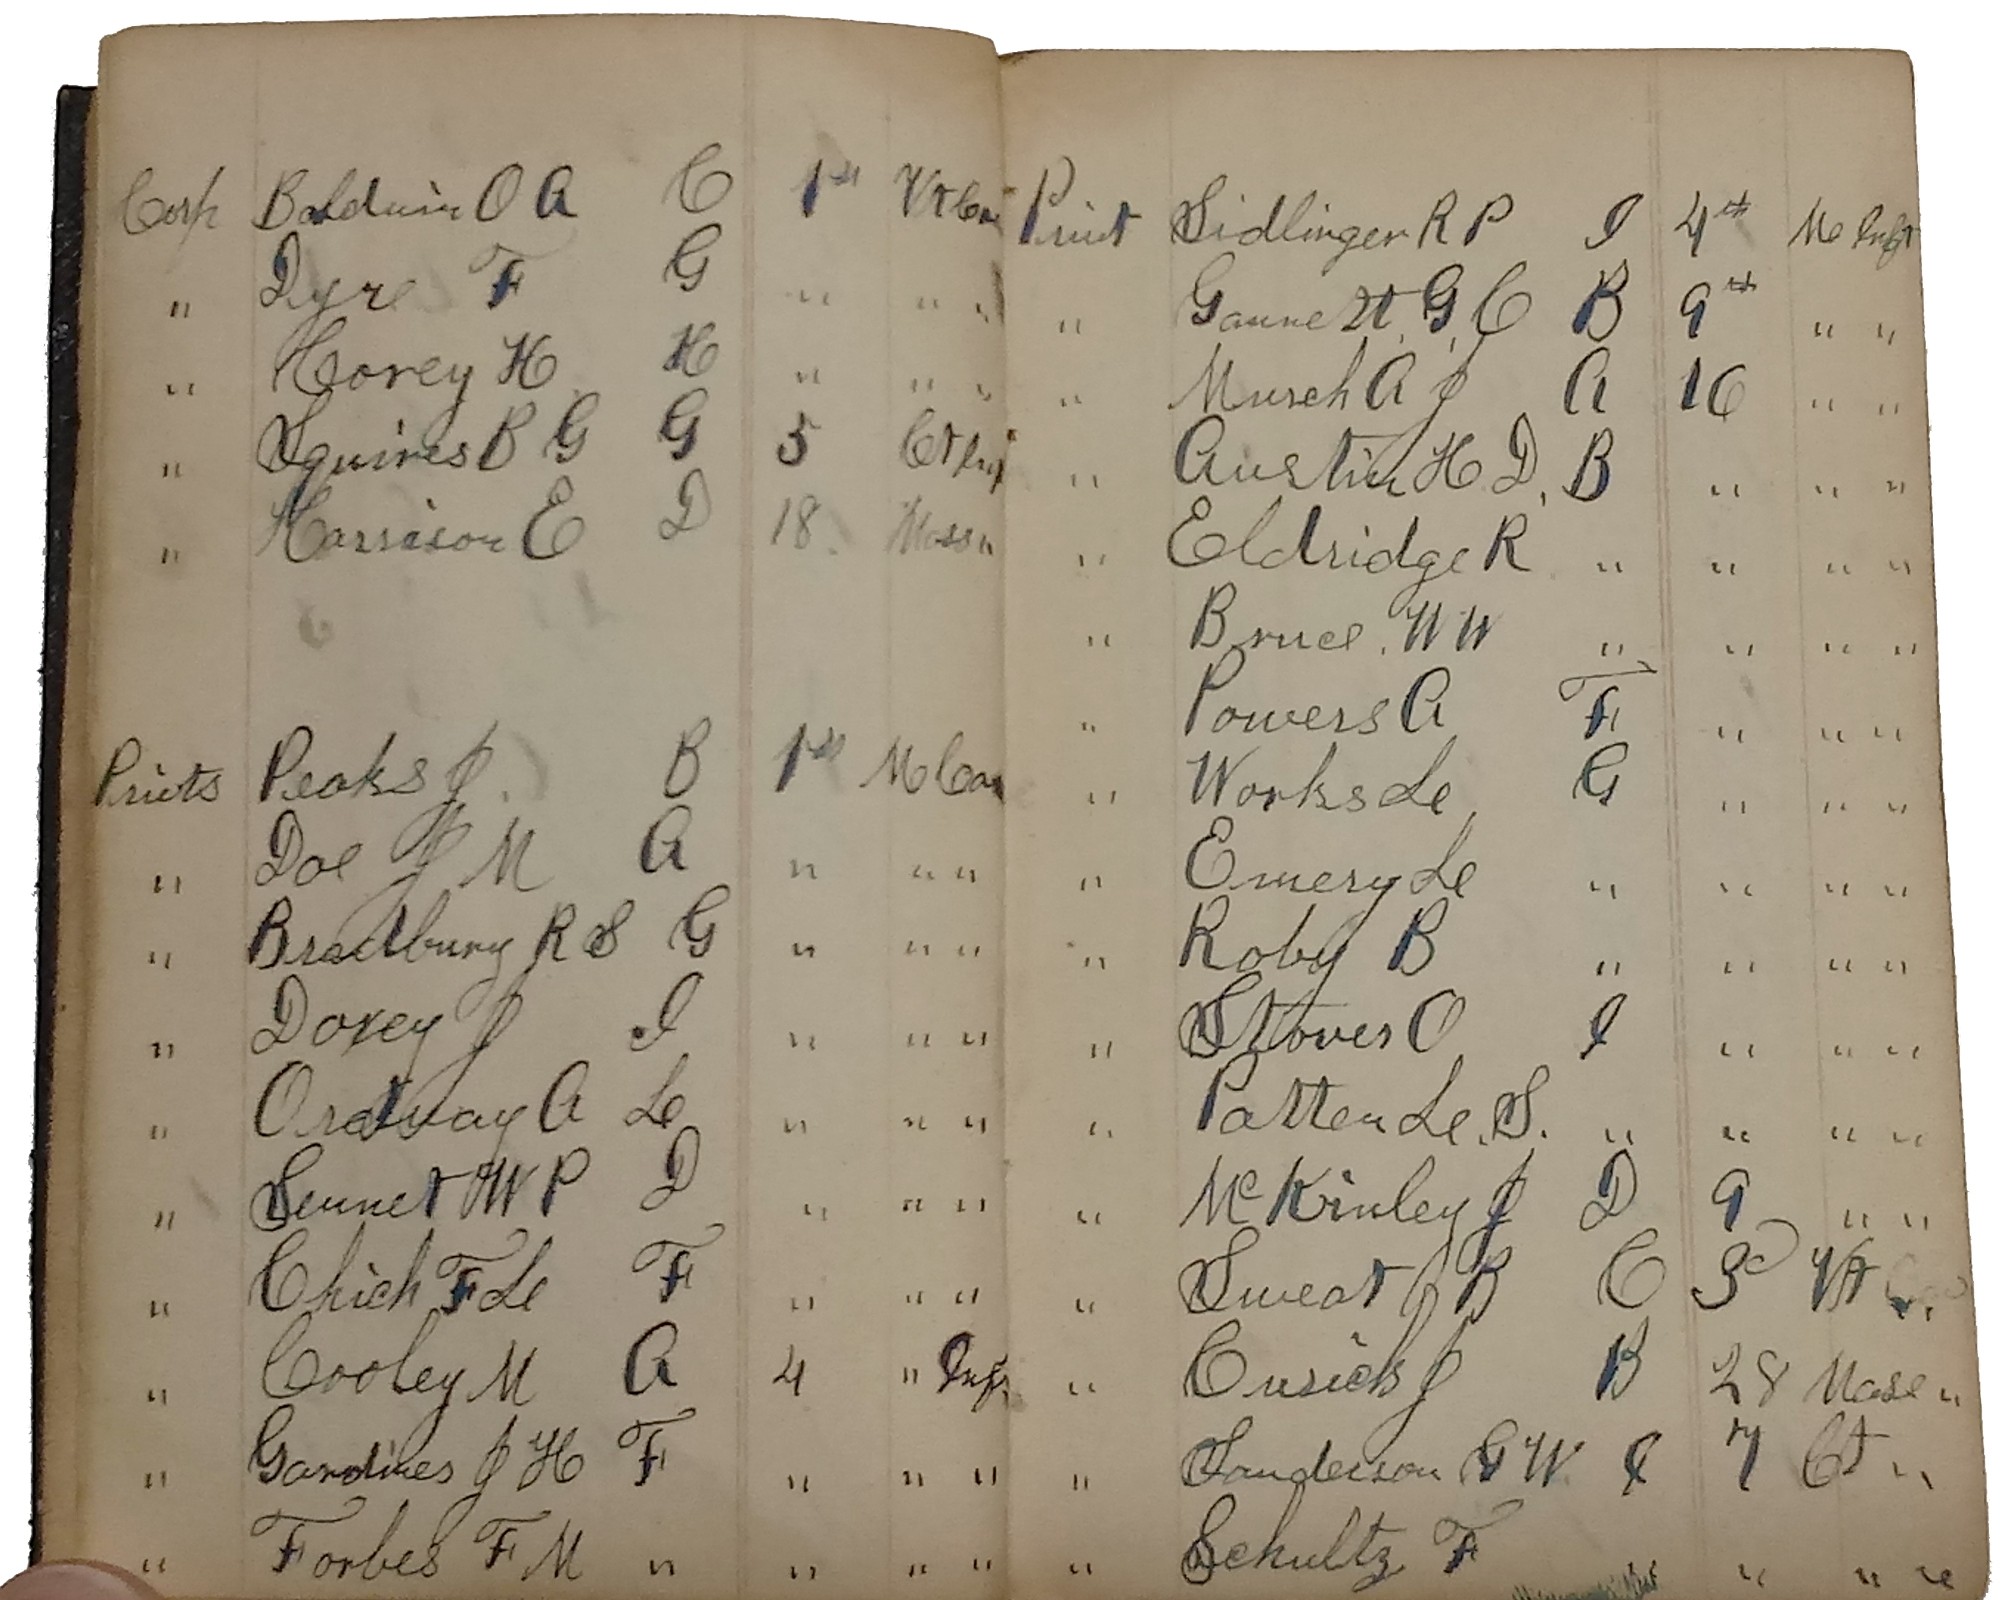 Corp Baldwin O A C 1st Vt Cav
" Dyre F G " " "
" Corey H H " " "
" Squires B G G 5 Ct Inf
" Harrison E D 18 Mass "
Privts Peaks J. B 1st M Cav
" Doe J M A " " "
" Bradbury R S G " " "
" Dorey J I " " "
" Ordway A L " " "
" Sennet W P D " " "
" Chich F L F " " "
" Cooley M A 4 " Inf
" Gardines J H F " " "
" Forbes F M " " " "
Privt Sidlinger R P I 4th Me Inft
" Gannett G C B 9th " "
" Murch A J A 16 " "
" Austin H D, B " " "
" Eldridge R " " " "
" Bruce. W W " " " "
" Powers A F " " "
" Works L G " " "
" Emery L " " " "
" Roby B " " " "
" Stover O I " " "
" Patten L. S. " " " "
" McKinley J D 9 " "
" Sweat J B C 3d Vt
" Cusick J B 28 Mass "
" Sanderson G W I 7 Ct "
" Schultz F " " "